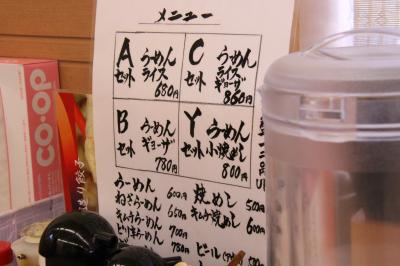 メニュー
Aセット
らーめん
ライス
680円
Cセット
らーめん
ライス
ギョーザ
860円
Bセット
らーめん
ギョーザ
780円
Yセット
らーめん
小焼めし
800円
らーめん 600円
ねぎらーめん 650円
キムチらーめん 700円
ピリ辛らーめん 780円
焼めし 500円
キムチ焼めし 600円
ビール
co·op
造り餃子